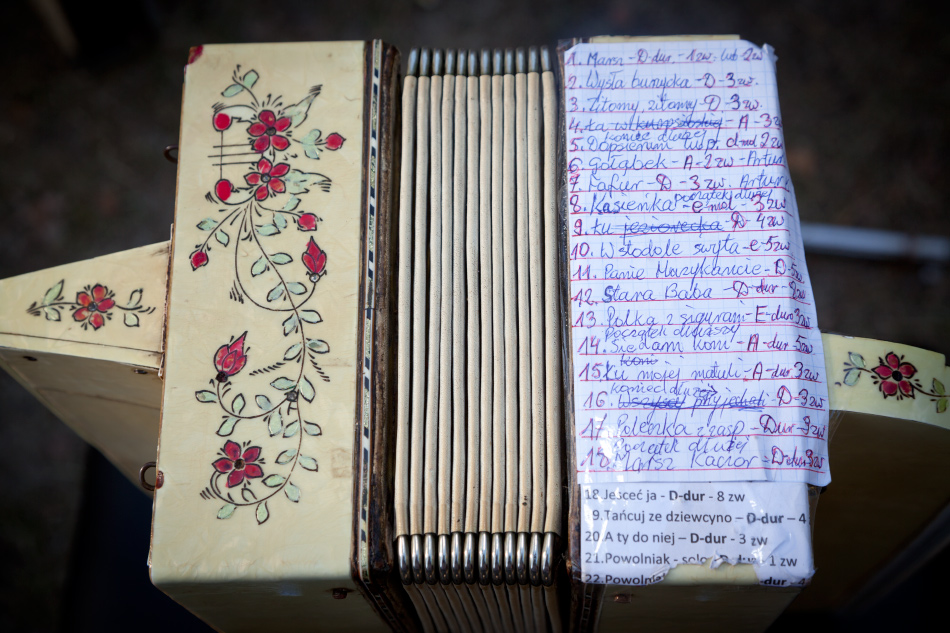 1. Marsz - D-dur - 1zw. lub 2zw
2. Wyszła burycka - D - 3zw.
3. Zitomy, zitomy - D - 3zw.
4. - A - 3z
koniec dłużej
5. d-mol 2zw
6. Gołąbek - A - 2zw - Artur
7. Fafur - D - 3zw. Artur
początek dłużej
8. Kasieńka - e-mol - 3zw
9. ku jeziorecka - D - 4zw
10. W stodole - e - 5zw
11. Panie Muzykancie - D - 5zw
12. Stara Baba - D-dur - 2zw
13. Polka z figurami - E-dur 3zw
początek dłuższy
14. Siedam koni - A-dur - 5zw
15. ku mojej matuli - A-dur 3zw
koniec dłużej
16. Wszyscy przyjechali - D - 3zw
17. Polenka - Ddur - 3zw
Początek dłużej
18. Marsz Kacior - D-dur 3zw
18 Jeśceć ja - D-dur - 8 zw
9. Tańcuj ze dziewcyno – D-dur – 4
20. A ty do niej – D-dur - 3 zw
21. Powolniak - solo D-dur - 1 zw
22. Powolniak dur - 4